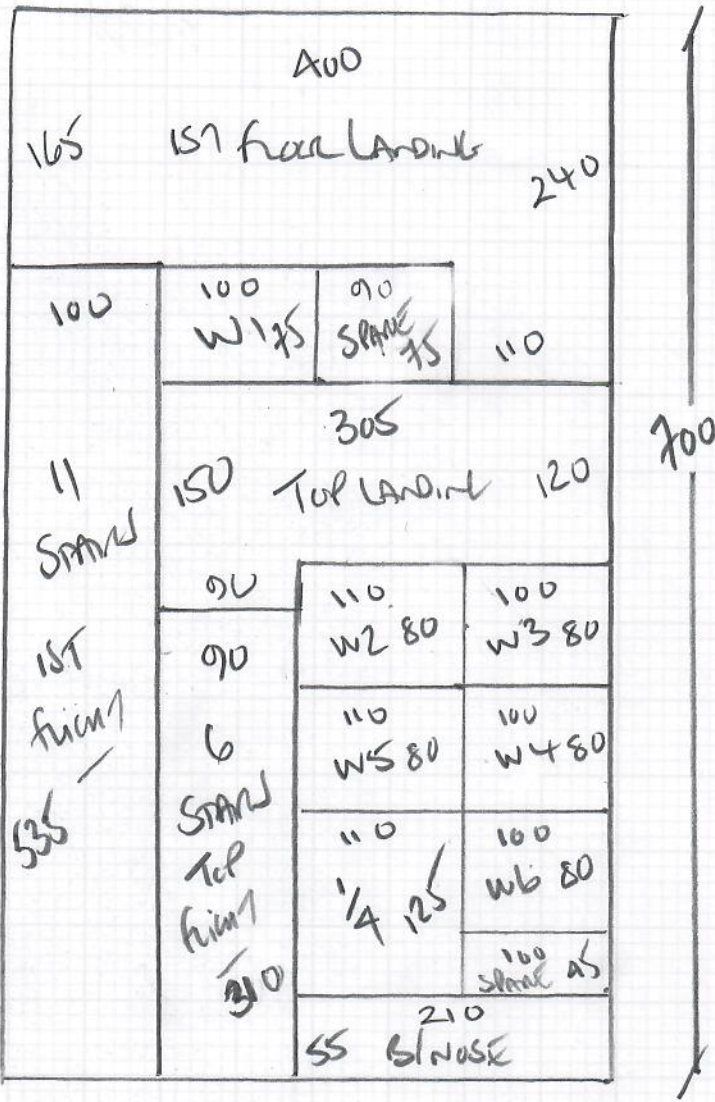 400
165 1ST FLOOR LANDING
240
100
100
W1 75
90
SPARE
75
110
305
150 TOP LANDING 120
90
700
11
STAIRS
1ST
FLIGHT
535
90
6
STAIRS
TOP
FLIGHT
310
110
W2 80
100
W3 80
110
W5 80
100
W4 80
110
1/4 125
100
W6 80
100
SPARE 45
210
55 B/NOSE